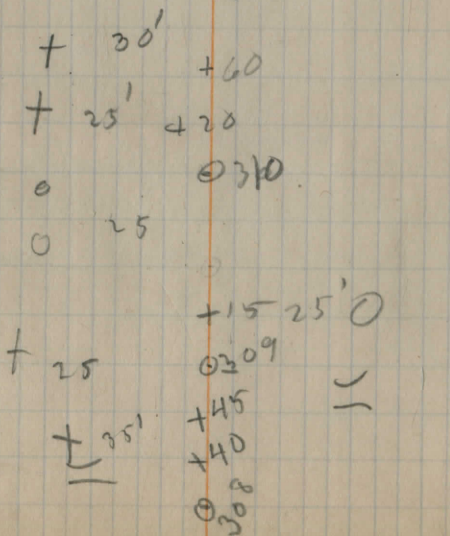 + 30'
+60
+ 25' +20
⊙310
25
+15 25' O
+ 25 ⊙309
+45
+ 35'
+40
⊙308